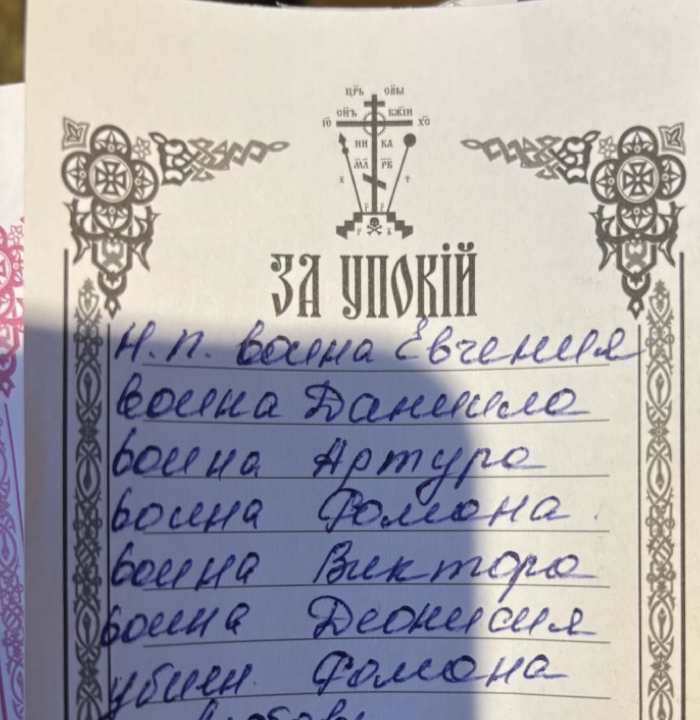 ЦРЬ СВЫ
СНЪ БЖІИ
ІС ХС
НИ КА
МЛ РБ
К Т
Г Г
Г А
ЗА УПОКІЙ
Н.п. воина Євгения
воина Даниила
воина Артура
воина Романа
воина Виктора
воина Дионисия
убиен. Романа
Любовь